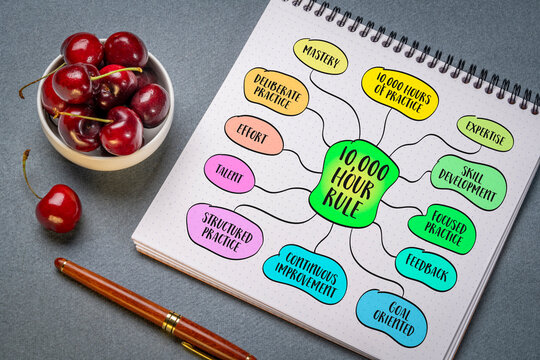 MASTERY
10,000 HOURS
OF PRACTICE
EXPERTISE
DELIBERATE
PRACTICE
EFFORT
TALENT
STRUCTURED
PRACTICE
10,000
HOUR
RULE
SKILL
DEVELOPMENT
FOCUSED
PRACTICE
FEEDBACK
CONTINUOUS
IMPROVEMENT
GOAL
ORIENTED